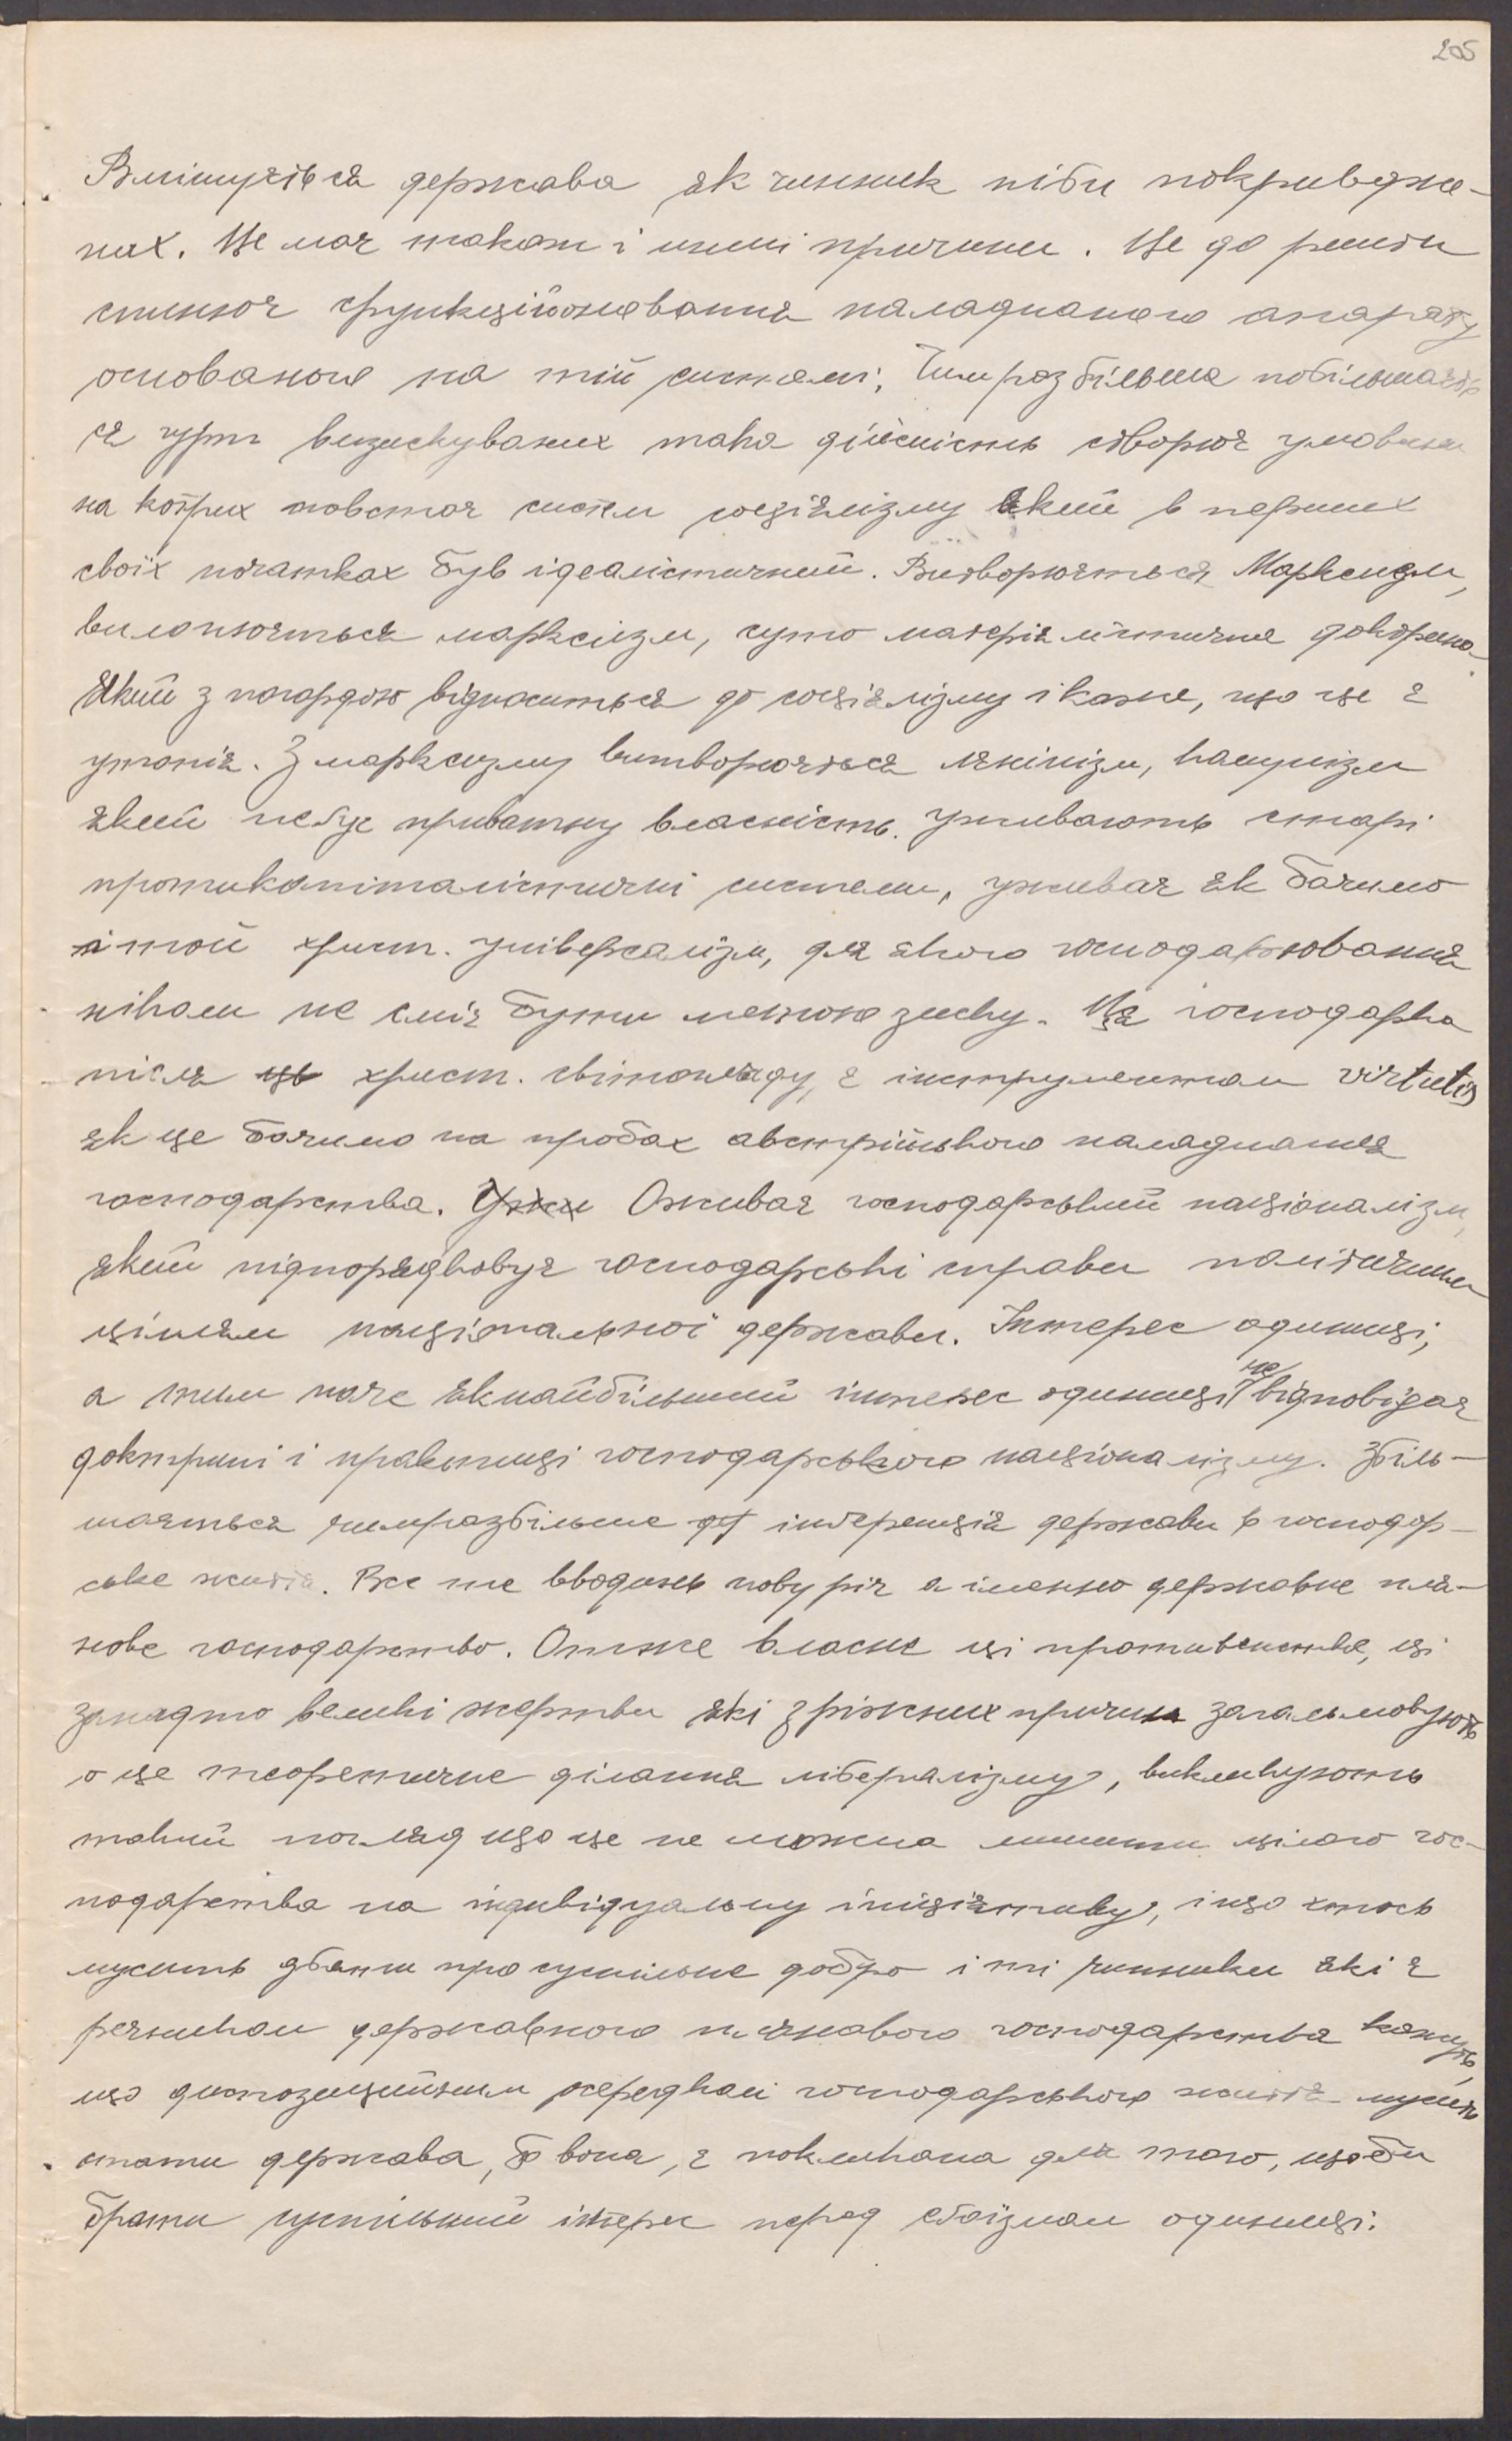 205
Вмішується держава як чинник ніби покривдже-
них. Це має також і инші причини. Це до решти
спиняє функційоновання наладнаного апарату
основаного на тій системі. Чимраз більше побільшаєть
ся гурт визискуваних така дійсність створює умовини
на котрих повстає систем соціялізму який в перших
своїх початках був ідеалістичний. Витворюється Марксизм,
вилонюється марксизм, суто матеріялістична доктрина
Який з погордою відноситься до соціялізму і каже, що це є
утопія. З марксизму витворюється лєнінізм, комунізм
який негує приватну власність. Уживають старі
протикапіталістичні системи, уживає як бачимо
і той христ. універсалізм, для якого господарювання
ніколи не сміє бути метою зиску. Ця господарка
після христ. світогляду, є інструментом virtutis
як це бачимо на пробах австрійського наладнання
господарства. Оживає господарський націоналізм,
який підпорядковує господарські справи політичним
цілям національної держави. Інтерес одиниці,
а тим паче якнайбільший інтерес одиниці не відповідає
доктрині і практиці господарського націоналізму. Збіль-
шається чимразбільше інтервенція держави в господар-
ське життя. Все те вводить нову річ а іменно державне пля-
нове господарство. Отже власне ці противенства, ці
занадто великі жертви які з ріжних причин загальмовують
оце теоретичне ділання лібералізму, викликують
такий погляд що це не можна лишити цілого гос-
подарства на індивідуальну ініціятиву, і що хтось
мусить дбати про суспільне добро і ті чинники які є
речником державного плянового господарства кажуть,
що диспозиційним осередком господарського життя мусить
стати держава, бо вона, є покликана для того, щоби
брати суспільний інтерес перед егоїзмом одиниці.